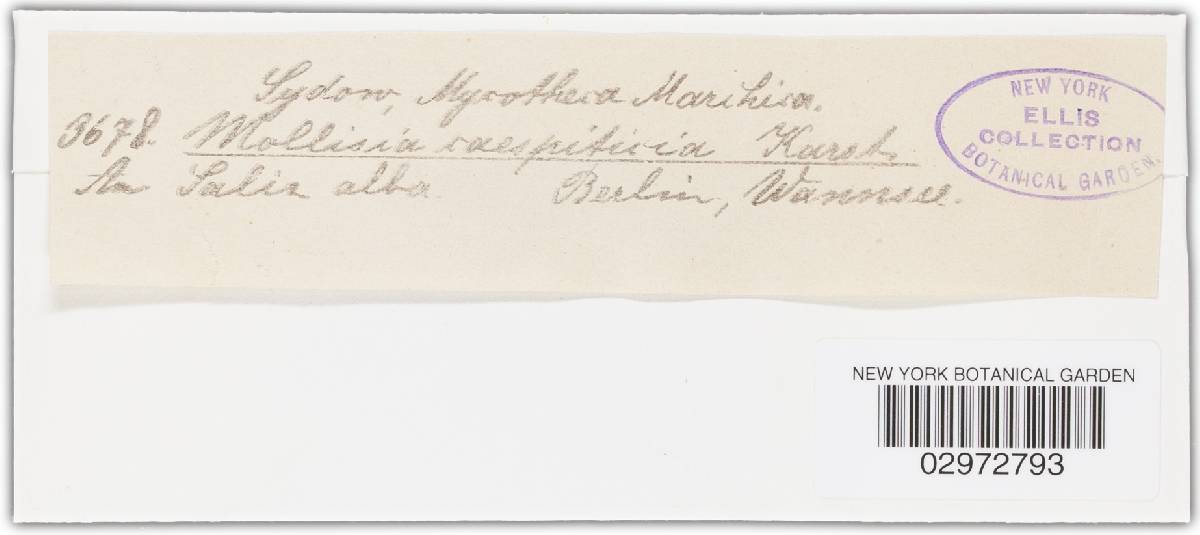 Sydow, Mycotheca Marchica.
3678. Mollisia caespiticia Karst.
An Salix alba. Berlin, Wannsee.
NEW YORK
ELLIS
COLLECTION
BOTANICAL GARDEN.
NEW YORK BOTANICAL GARDEN
02972793